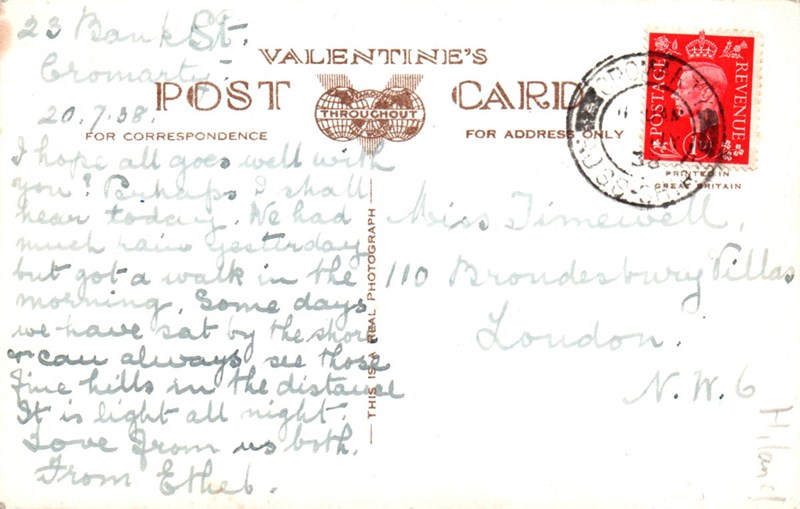 23 Bank St.
Cromarty
20.7.38.
VALENTINE'S
POST CARD
THROUGHOUT
FOR CORRESPONDENCE
FOR ADDRESS ONLY
I hope all goes well with
you? Perhaps I shall
hear today. We had
much rain yesterday
but got a walk in the
morning. Some days
we have sat by the shore
or can always see those
fine hills in the distance
It is light all night.
Love from us both.
From Ethel.
THIS IS A REAL PHOTOGRAPH
POSTAGE
REVENUE
1D
38
ROSS-SHIRE
PRINTED IN
GREAT BRITAIN
Miss Timewell,
110 Brondesbury Villas
London.
N.W.6